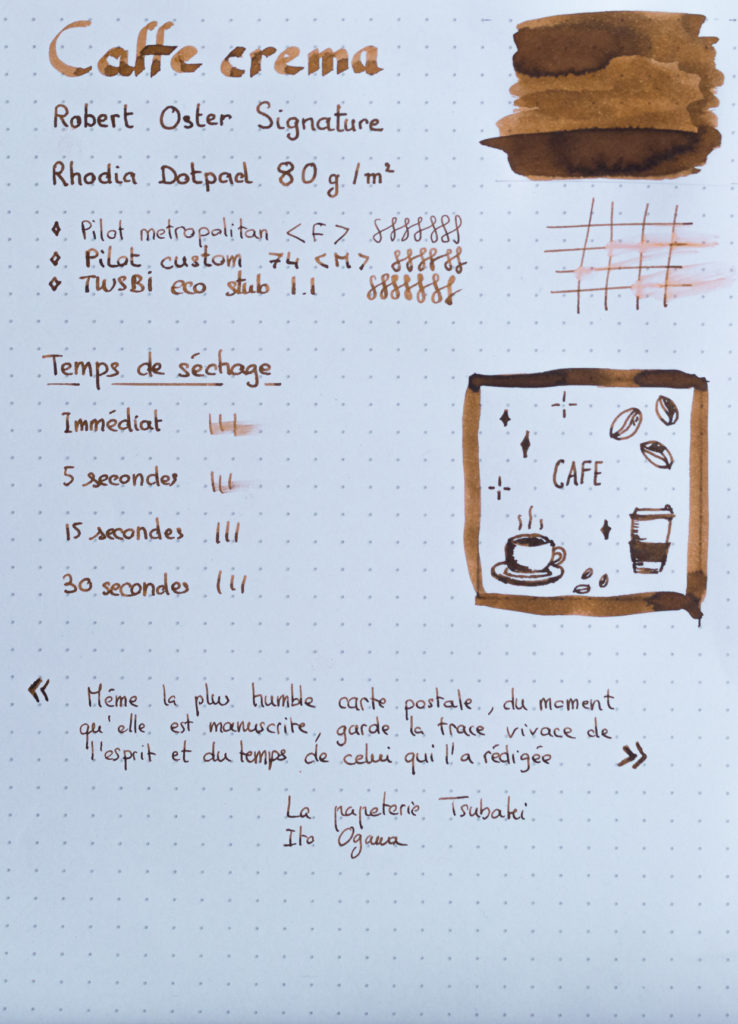 Caffe crema
Robert Oster Signature
Rhodia Dotpad 80 g/m²
Pilot metropolitan <F>
Pilot custom 74 <M>
TWSBi eco stub 1.1
Temps de séchage
Immédiat
5 secondes
15 secondes
30 secondes
CAFE
« Même la plus humble carte postale, du moment
qu'elle est manuscrite, garde la trace vivace de
l'esprit et du temps de celui qui l'a rédigée »
La papeterie Tsubaki
Ito Ogawa